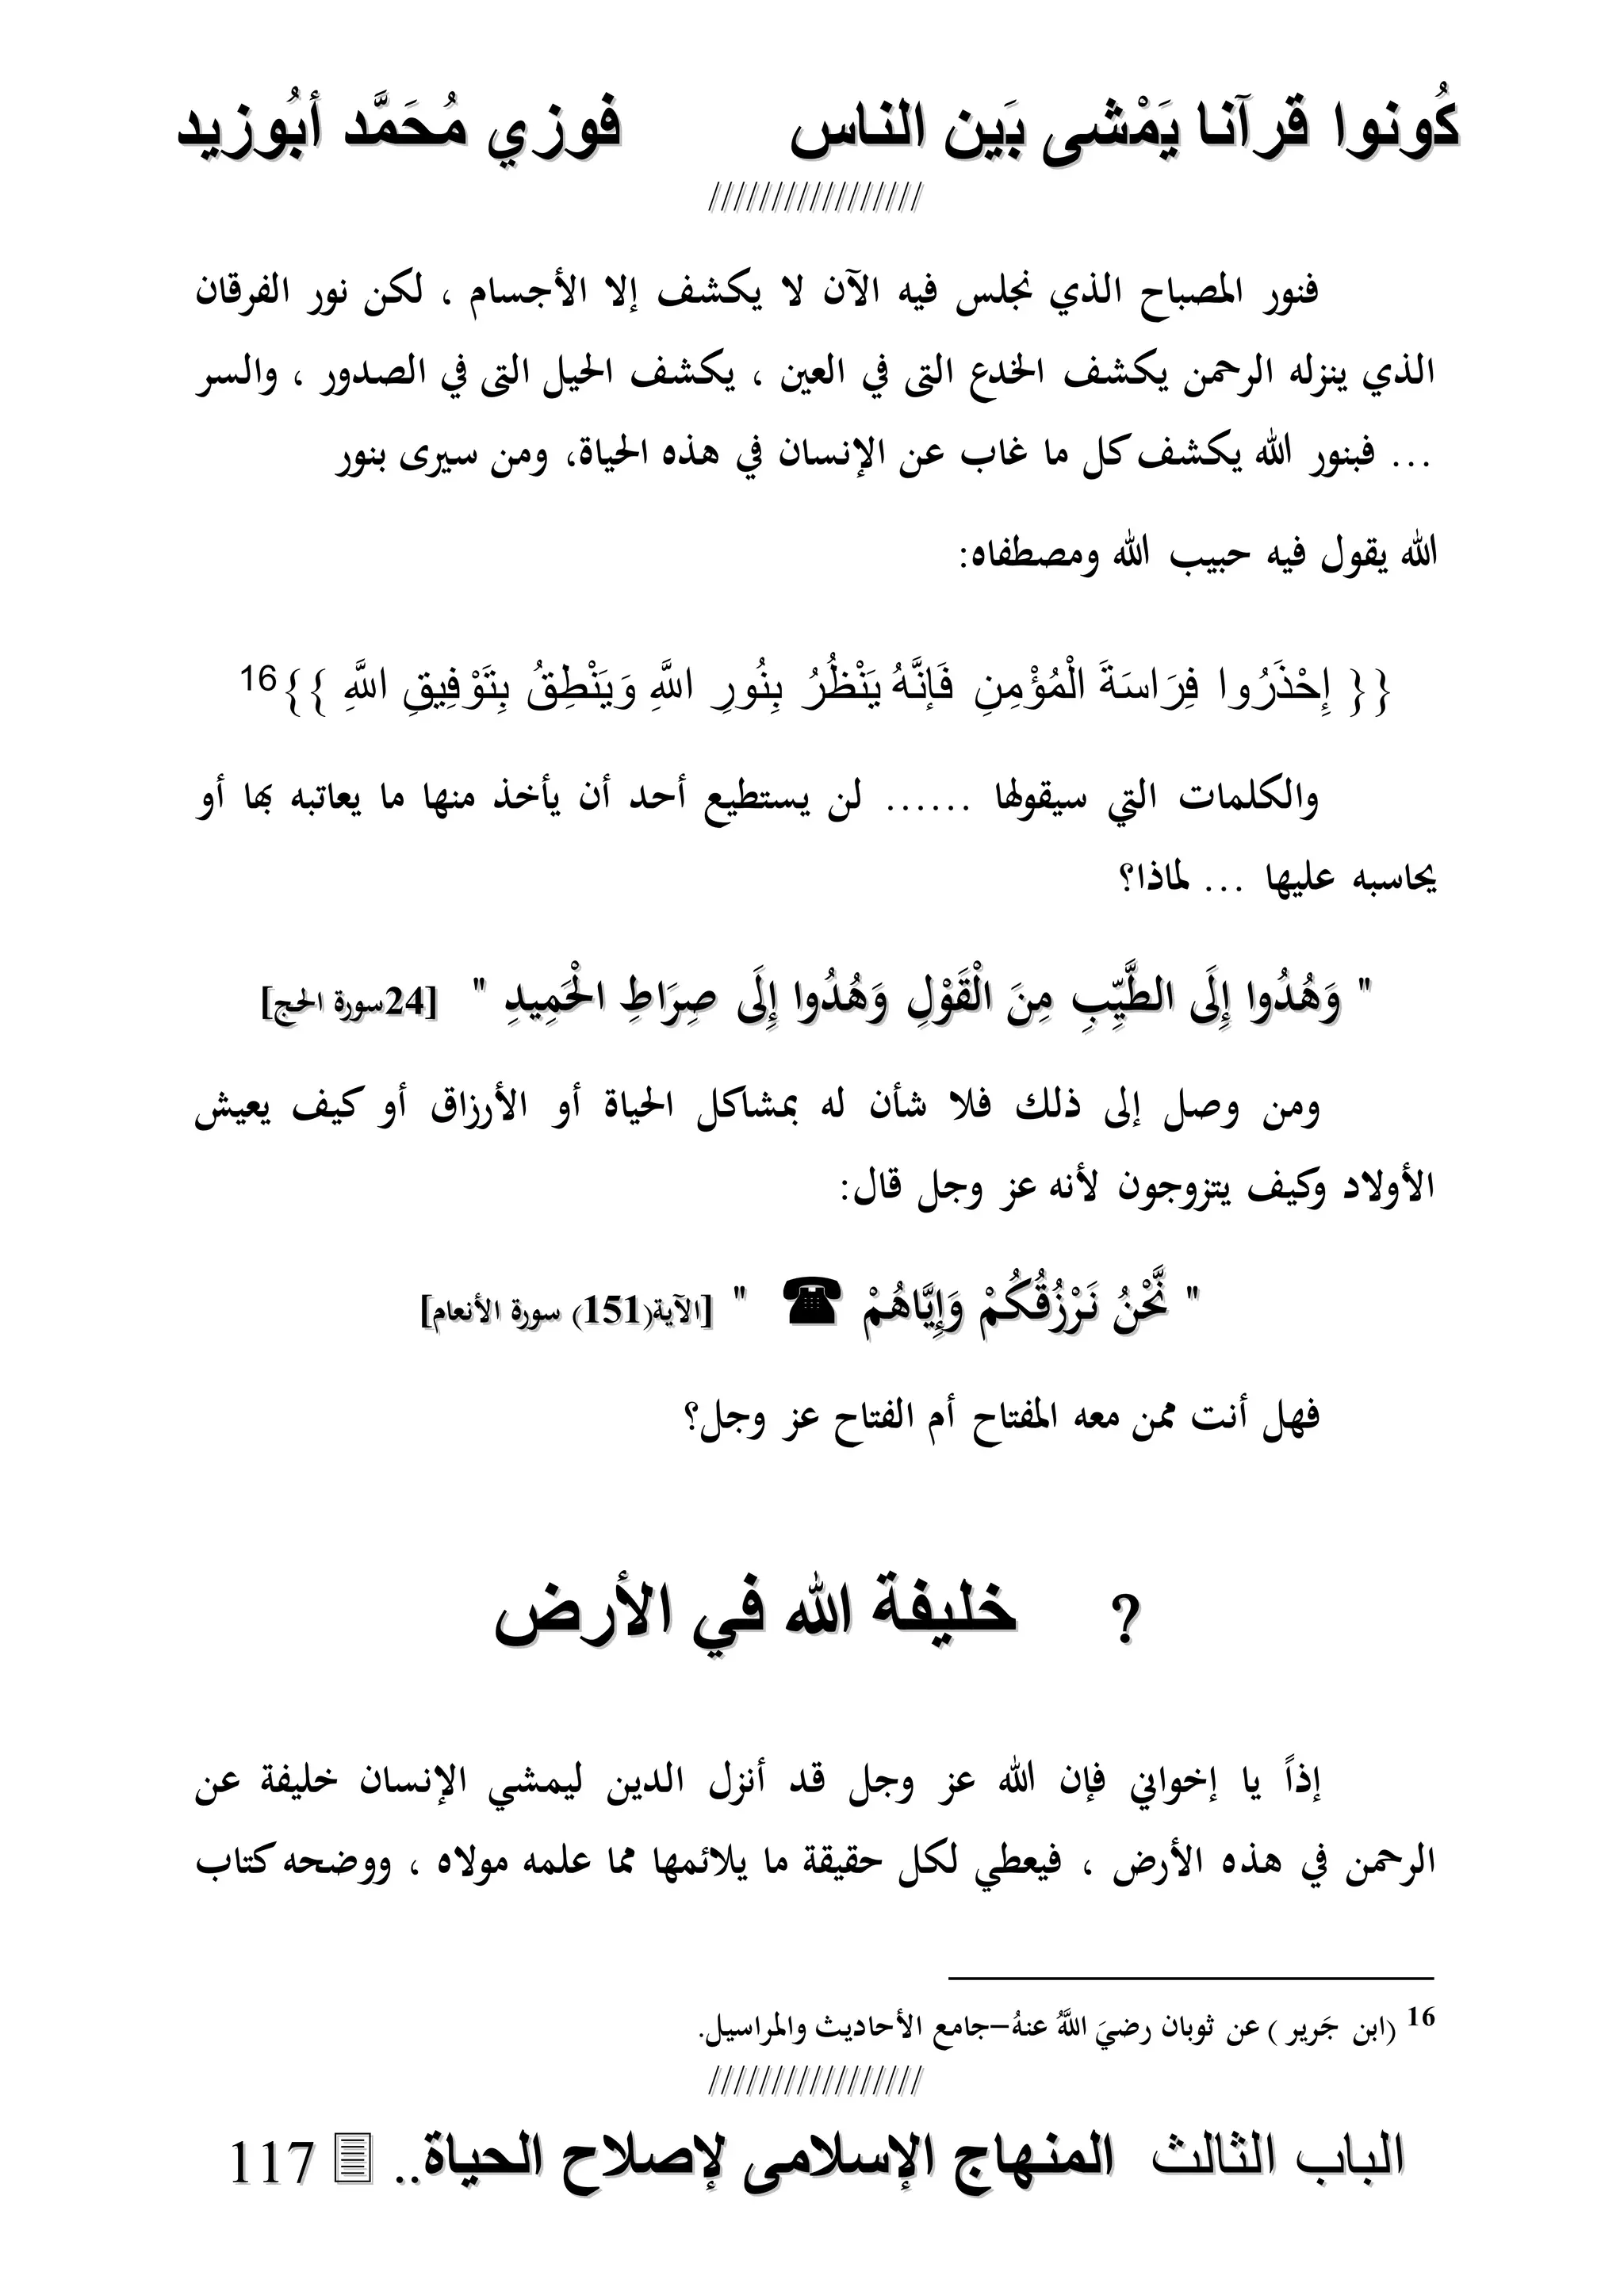 كُونوا قرآنا يَمْشى بَين الناس فوزي مُحَمَّد أبُوزيد
/////////////////
فنور المصباح الذي نجلس فيه الآن لا يكشف إلا الأجسام ، لكن نور الفرقان
الذي ينزله الرحمن يكشف الخدع التى في العين ، يكشف الحيل التى في الصدور ، والسر
... فبنور الله يكشف كل ما غاب عن الإنسان في هذه الحياة، ومن سيرى بنور
الله يقول فيه حبيب الله ومصطفاه:
{{ إِحْذَرُوا فِرَاسَةَ الْمُؤْمِنِ فَإِنَّهُ يَنْظُرُ بِنُورِ اللَّهِ وَيَنْطِقُ بِتَوْفِيقِ اللَّهِ }}16
والكلمات التي سيقولها ...... لن يستطيع أحد أن يأخذ منها ما يعاتبه بها أو
يحاسبه عليها ... لماذا؟
" وَهُدُوا إِلَى الطَّيِّبِ مِنَ الْقَوْلِ وَهُدُوا إِلَى صِرَاطِ الْحَمِيدِ " [24سورة الحج]
ومن وصل إلى ذلك فلا شأن له بمشاكل الحياة أو الأرزاق أو كيف يعيش
الأولاد وكيف يتزوجون لأنه عز وجل قال:
" نَّحْنُ نَرْزُقُكُمْ وَإِيَّاهُمْ ☎ " [الآية(151) سورة الأنعام]
فهل أنت ممن معه المفتاح أم الفتاح عز وجل؟
? خليفة الله في الأرض
إذاً يا إخواني فإن الله عز وجل قد أنزل الدين ليمشي الإنسان خليفة عن
الرحمن في هذه الأرض ، فيعطي لكل حقيقة ما يلائمها مما علمه مولاه ، ووضحه كتاب
16 (ابن جَرير ) عن ثوبان رضيَ اللَّهُ عنهُ–جامع الأحاديث والمراسيل.
/////////////////
الباب الثالث المنهاج الإسلامى لإصلاح الحياة.. 117